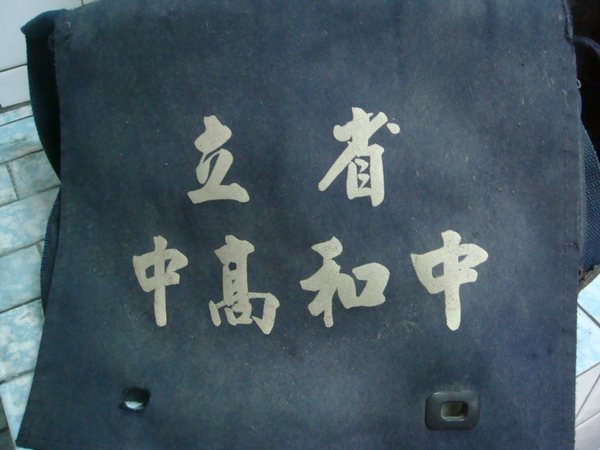 省立
中和高中